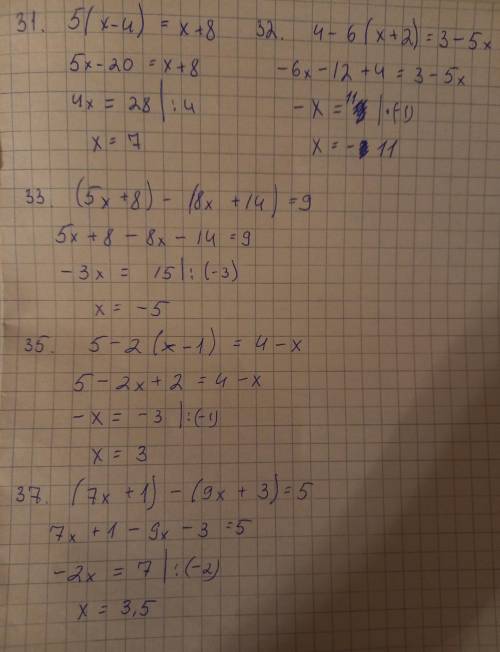 31. 5(x-4) = x+8
5x-20 = x+8
4x = 28 | :4
x = 7
32. 4-6(x+2)=3-5x
-6x-12+4=3-5x
-x = 11 | ·(-1)
x = -11
33. (5x+8) - (8x+14)=9
5x+8-8x-14=9
-3x = 15 | : (-3)
x = -5
35. 5-2(x-1) = 4-x
5-2x+2=4-x
-x = -3 | :(-1)
x = 3
37. (7x+1)-(9x+3)=5
7x+1-9x-3=5
-2x = 7 | :(-2)
x = 3,5